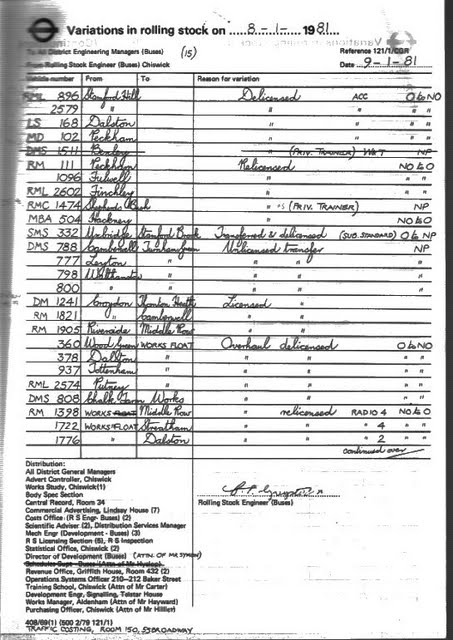 Variations in rolling stock on 8 - 1 - 1981
To All District Engineering Managers (Buses) (15) Reference 121/1/CBR
From Rolling Stock Engineer (Buses) Chiswick Date 9-1-81
Vehicle number From To Reason for variation
RML 896 Stamford Hill Delicensed ACC O to NO
2579 " " " " "
LS 168 Dalston " " "
MD 102 Peckham " " "
DMS 1511 Bexley " (PRIV. TRAINER) WET NP
RM 111 Peckham Relicensed NO to O
1096 Fulwell " " "
RML 2602 Finchley " " "
RMC 1474 Shepherds Bush " (PRIV. TRAINER) NP
MBA 504 Hackney " NO to O
SMS 332 Uxbridge Stamford Brook Transferred & delicensed (SUB STANDARD) O to NP
DMS 788 Camberwell Turnham Green Unlicensed transfer NP
777 Leyton " " " "
798 Walthamstow " " " "
800 " " " " "
DM 1241 Croydon Thornton Heath Licensed "
RM 1821 " Camberwell " "
RM 1905 Riverside Middle Row " "
360 Wood Green WORKS FLOAT Overhaul delicensed O to NO
378 Dalston " " " " "
937 Tottenham " " " " "
RML 2574 Putney " " " " "
DMS 808 Chalk Farm Works " " " "
RM 1398 WORKS FLOAT Middle Row " relicensed RADIO 4 NO to O
1722 WORKS FLOAT Streatham " " " 4 " "
1776 " Dalston " " " 2 " "
continued over
Distribution:
All District General Managers
Advert Controller, Chiswick
Works Study, Chiswick(1)
Body Spec Section
Central Record, Room 34
Commercial Advertising, Lindsey House (7)
Costs Office (R S Engr- Buses) (2)
Scientific Adviser (2), Distribution Services Manager
Mech Engr (Development - Buses) (3)
R S Licensing Section (6), R S Inspection
Statistical Office, Chiswick (2)
Director of Development (Buses) (ATTN. OF MR SYMON)
Schedules Supt - Buses (Attn of Mr Hyslop)
Revenue Office, Griffith House, Room 432 (2)
Operations Systems Officer 210-212 Baker Street
Training School, Chiswick (Attn of Mr Carter)
Development Engr, Signalling, Telstar House
Works Manager, Aldenham (Attn of Mr Hayward)
Purchasing Officer, Chiswick (Attn of Mr Hillier)
Rolling Stock Engineer (Buses)
408/69(1) (500 2/79 121/1)
TRAFFIC COSTING, ROOM 150, 55 BROADWAY